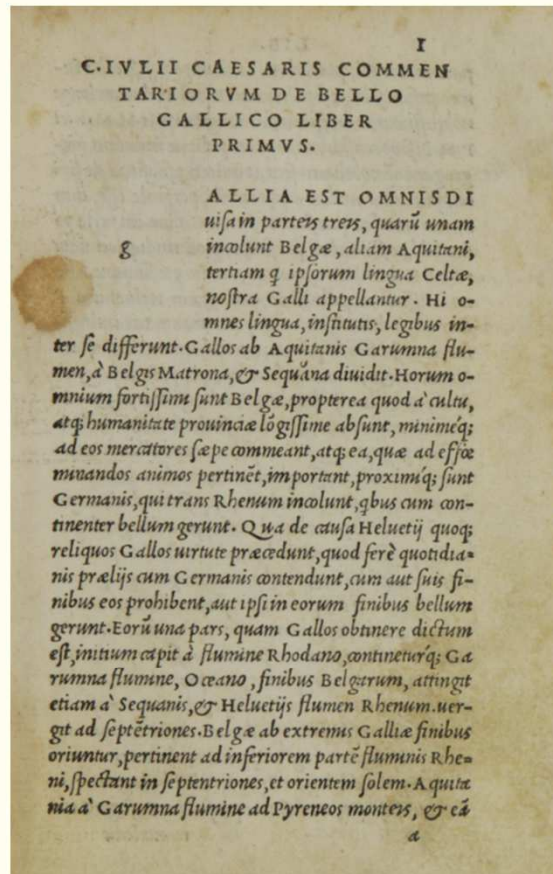 1
C. IVLII CAESARIS COMMEN
TARIORVM DE BELLO
GALLICO LIBER
PRIMVS.
g
ALLIA EST OMNIS DI
uisa in parteis treis, quarũ unam
incolunt Belgæ, aliam Aquitani,
tertiam q ipsorum lingua Celtæ,
nostra Galli appellantur. Hi o-
mnes lingua, institutis, legibus in-
ter se differunt. Gallos ab Aquitanis Garumna flu-
men, à Belgis Matrona, & Sequana diuidit. Horum o-
mnium fortissimi sunt Belgæ, propterea quod à cultu,
atq; humanitate prouinciæ lõgissime absunt, minimeq́;
ad eos mercatores sæpe commeant, atq; ea, quæ ad effœ
minandos animos pertinẽt, important, proximiq́; sunt
Germanis, qui trans Rhenum incolunt, qbus cum con-
tinenter bellum gerunt. Qua de causa Heluetij quoq;
reliquos Gallos uirtute præcedunt, quod ferè quotidia-
nis prælijs cum Germanis contendunt, cum aut suis fi-
nibus eos prohibent, aut ipsi in eorum finibus bellum
gerunt. Eorũ una pars, quam Gallos obtinere dictum
est, initium capit à flumine Rhodano, contineturq́; Ga
rumna flumine, Oceano, finibus Belgarum, attingit
etiam à Sequanis, & Heluetijs flumen Rhenum. uer-
git ad septẽtriones. Belgæ ab extremis Galliæ finibus
oriuntur, pertinent ad inferiorem partẽ fluminis Rhe-
ni, spectant in septentriones, et orientem solem. Aquita
nia à Garumna flumine ad Pyreneos monteis, & eã
a